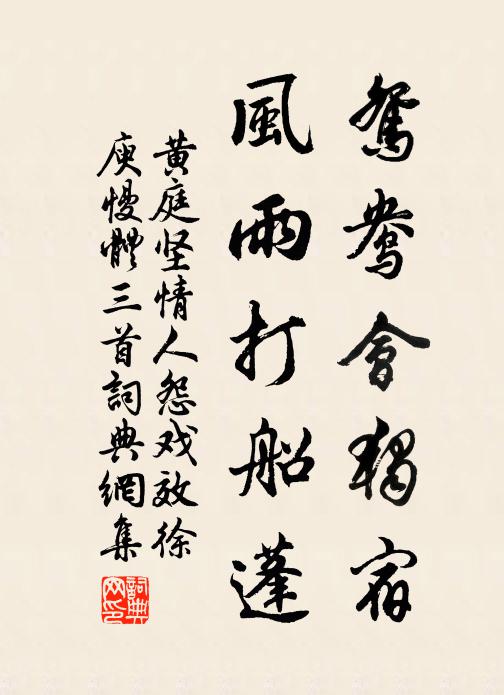 鸳鸯會獨宿
風雨打船蓬
黄庭坚情人怨戏效徐
庾慢體三首詞典網集
詞典网印